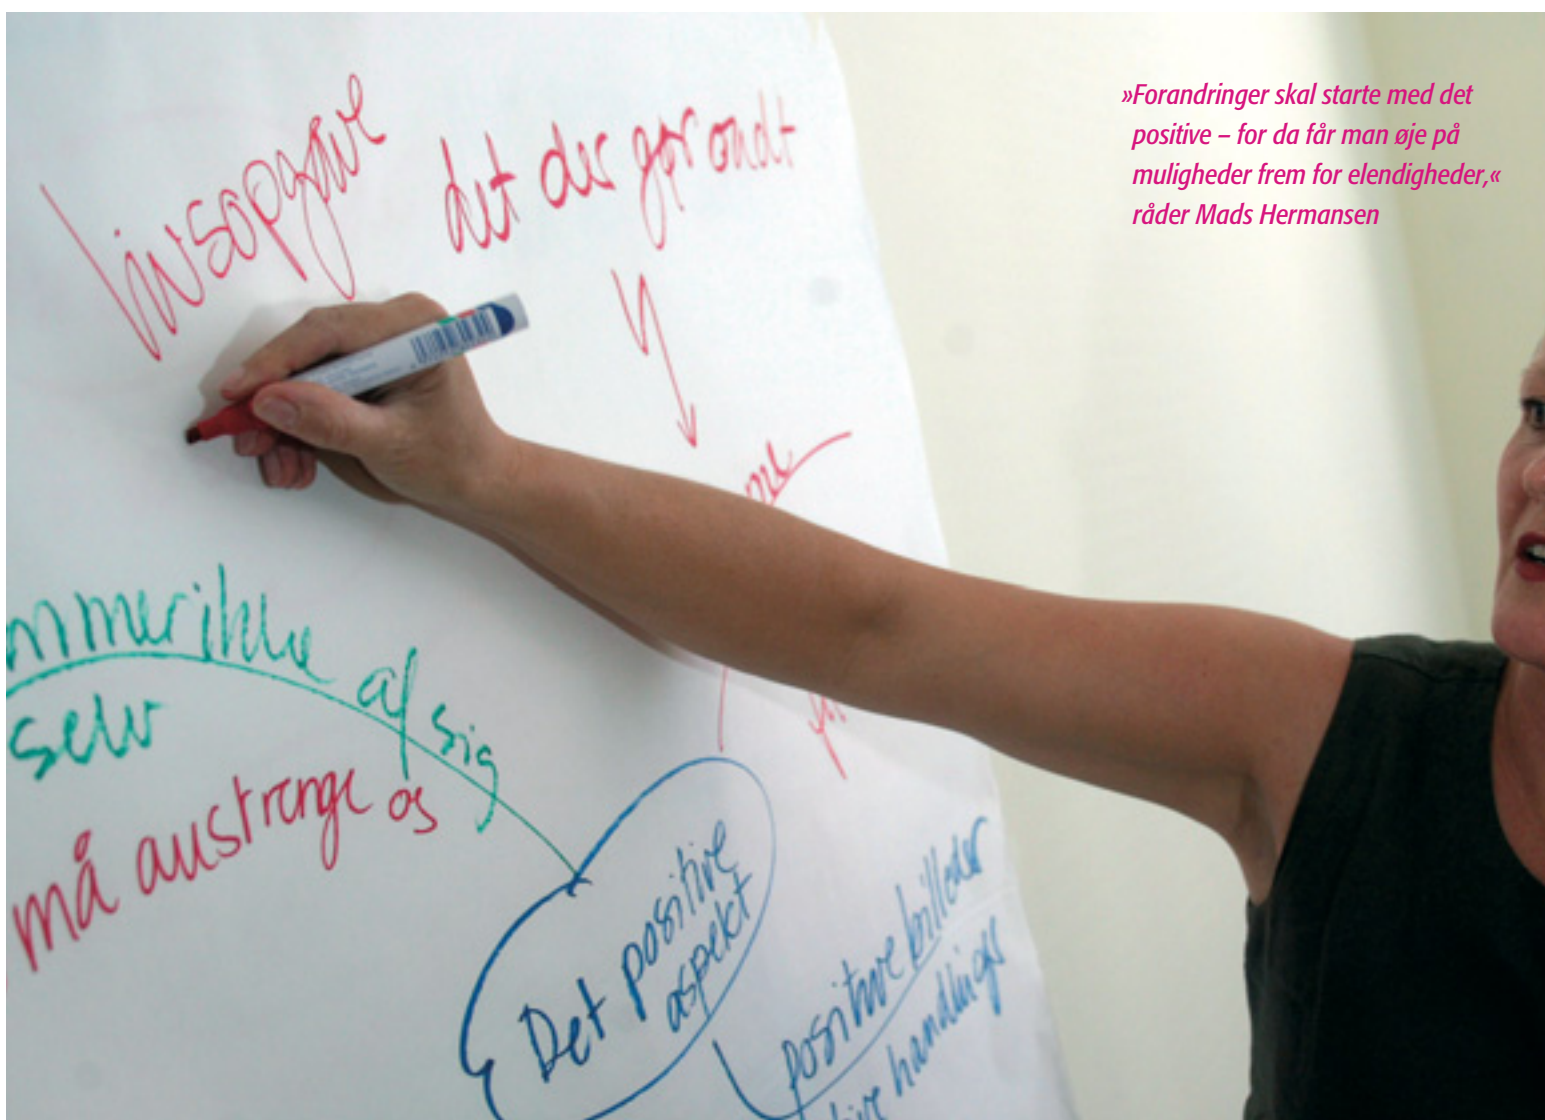 »Forandringer skal starte med det
positive – for da får man øje på
muligheder frem for elendigheder,«
råder Mads Hermansen
livsopgave
det der gør ondt
ikke af sig
selv
må anstrenge os
Det positive
aspekt
positive billeder
handlinger